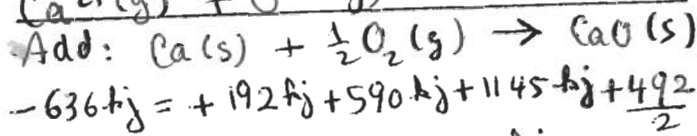 Add: Ca (s) + ½O₂(g) → CaO (s)
-636 kj = + 192 kj + 590 kj + 1145 kj + 492/2